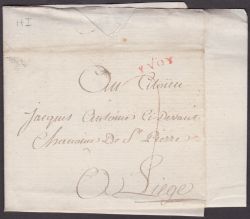 HI
YVOY
Au Citoïen
Jacques Antoine Ci-devant
Chanoine De St Pierre
A Liege